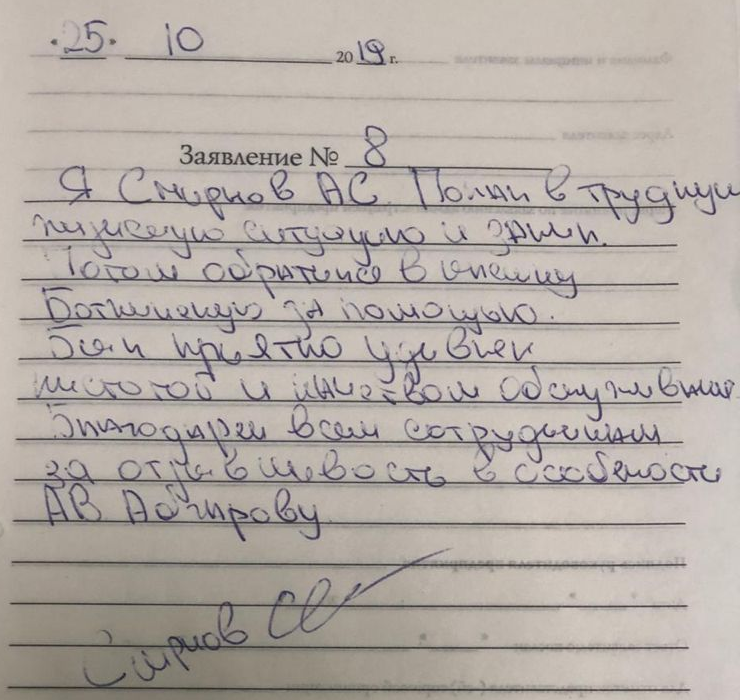 "25" 10 2019 г.
Заявление № 8
Я Смирнов АС Попал в трудную
жизненую ситуацию и запил.
Потом обратился в клинику
Боткинскую за помощью.
Был приятно удевлен
чистотой и качеством обслуживания
Благодарен всем сотрудникам
за отзывчивость в особености
АВ
Смирнов